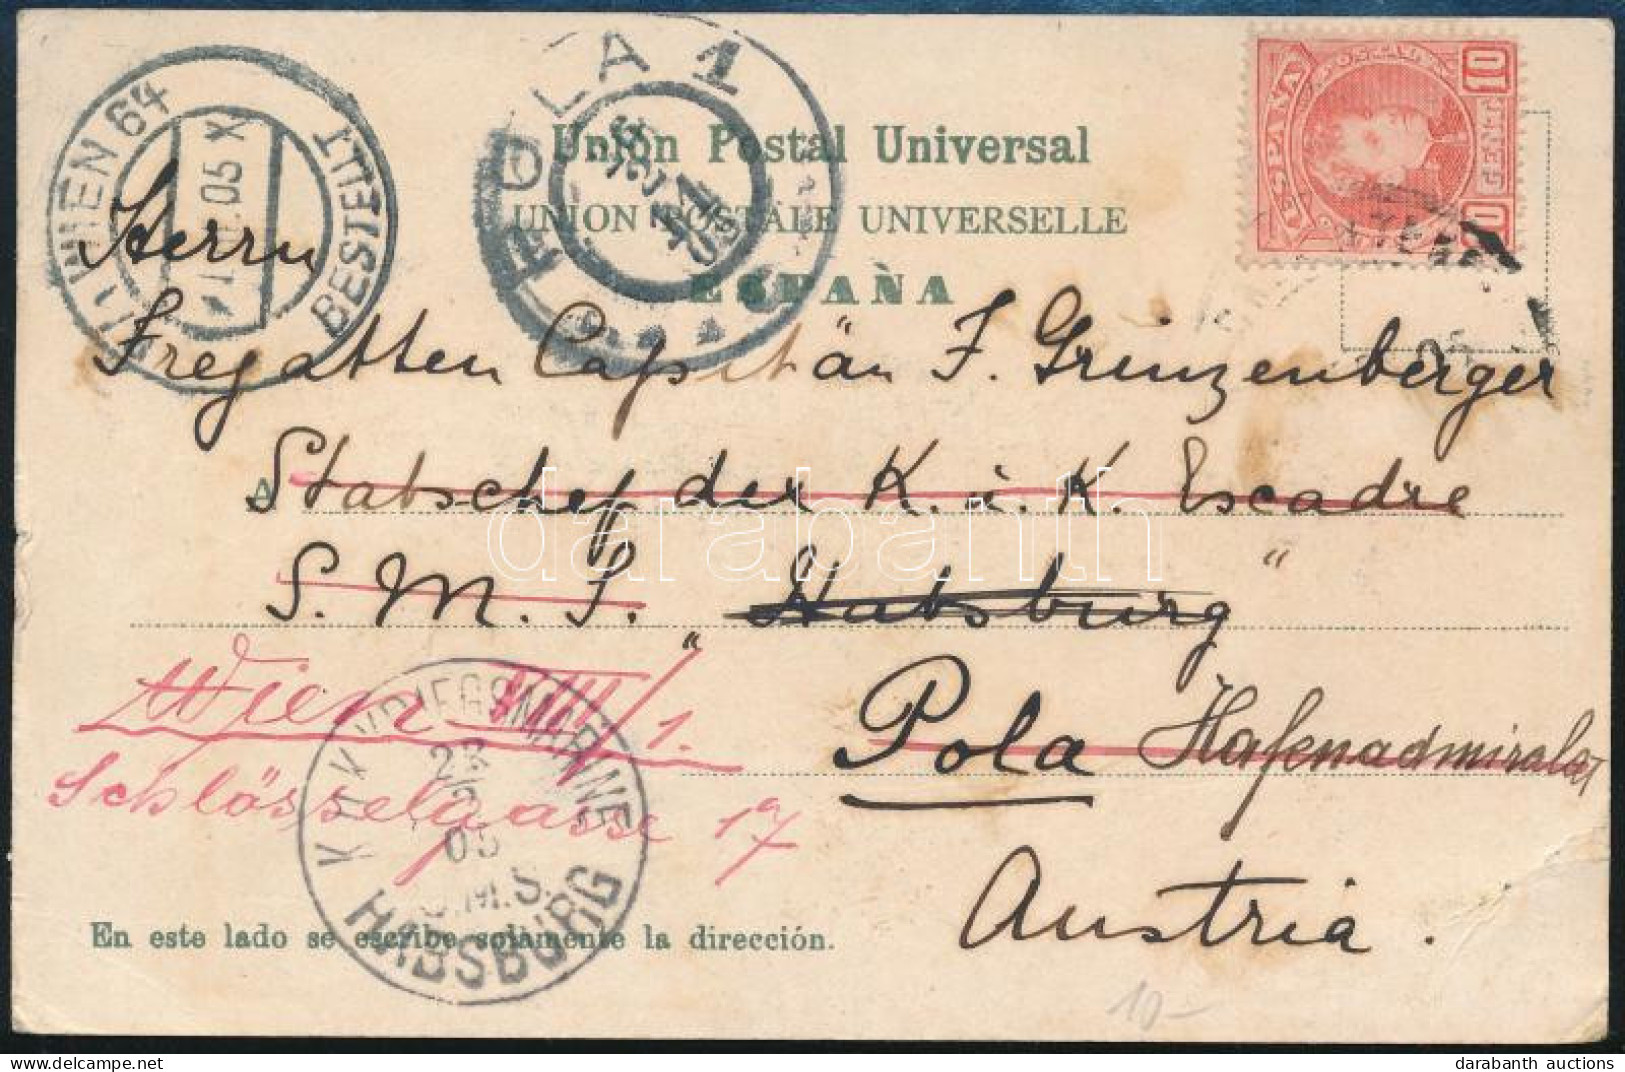 WIEN 64
BESTELLT
05 X
POLA 1
ESPAÑA
10 CENTS 10
Unión Postal Universal
UNION POSTALE UNIVERSELLE
ESPAÑA
Herrn
Fregatten Capitän F. Grinzenberger
A Stabschef der K. u. K. Escadre
S. M. S. „Habsburg“
Pola Hafenadmiralat
Wien VIII/1.
Schlösselgasse 17
Austria.
K.u.K. KRIEGSMARINE
23
05
S.M.S.
HABSBURG
En este lado se escribe solamente la dirección.
10-
darabanth
darabanth auctions